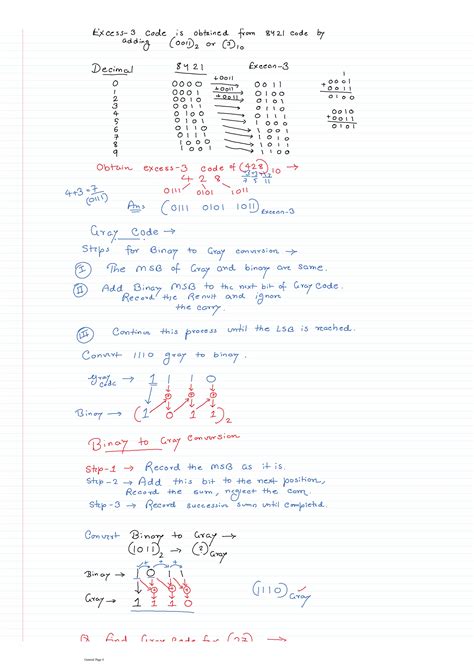 Excess-3 code is obtained from 8421 code by
adding (0011)₂ or (3)₁₀
Decimal 8421 Excess-3
0 0000 +0011 0011
1 0001 +0011 0100
2 0010 +0011 0101
3 0011 0110
4 0100 0111
5 0101 1000
6 0110 1001
7 0111 1010
8 1000 1011
9 1001 1100
1
0001
+0011
0100
0010
+0011
0101
Obtain excess-3 code of (428)₁₀ →
4 2 8
4+3=7
(0111)
0111 0101 1011
Ans (0111 0101 1011)Excess-3
Gray Code →
Steps for Binary to Gray conversion →
I The MSB of Gray and binary are same.
II Add Binary MSB to the next bit of Gray Code.
Record the Result and ignore
the carry.
III Continue this process until the LSB is reached.
Convert 1110 gray to binary.
gray code → 1 1 1 0
Binary → (1 0 1 1)₂
Binary to Gray Conversion
Step-1 → Record the MSB as it is.
Step-2 → Add this bit to the next position,
Record the sum, neglect the
Step-3 → Record successive sums until completed.
Convert Binary to Gray →
(1011)₂ → (?)Gray
Binary → 1 0 1 1
Gray → 1 1 1 0
(1110)Gray